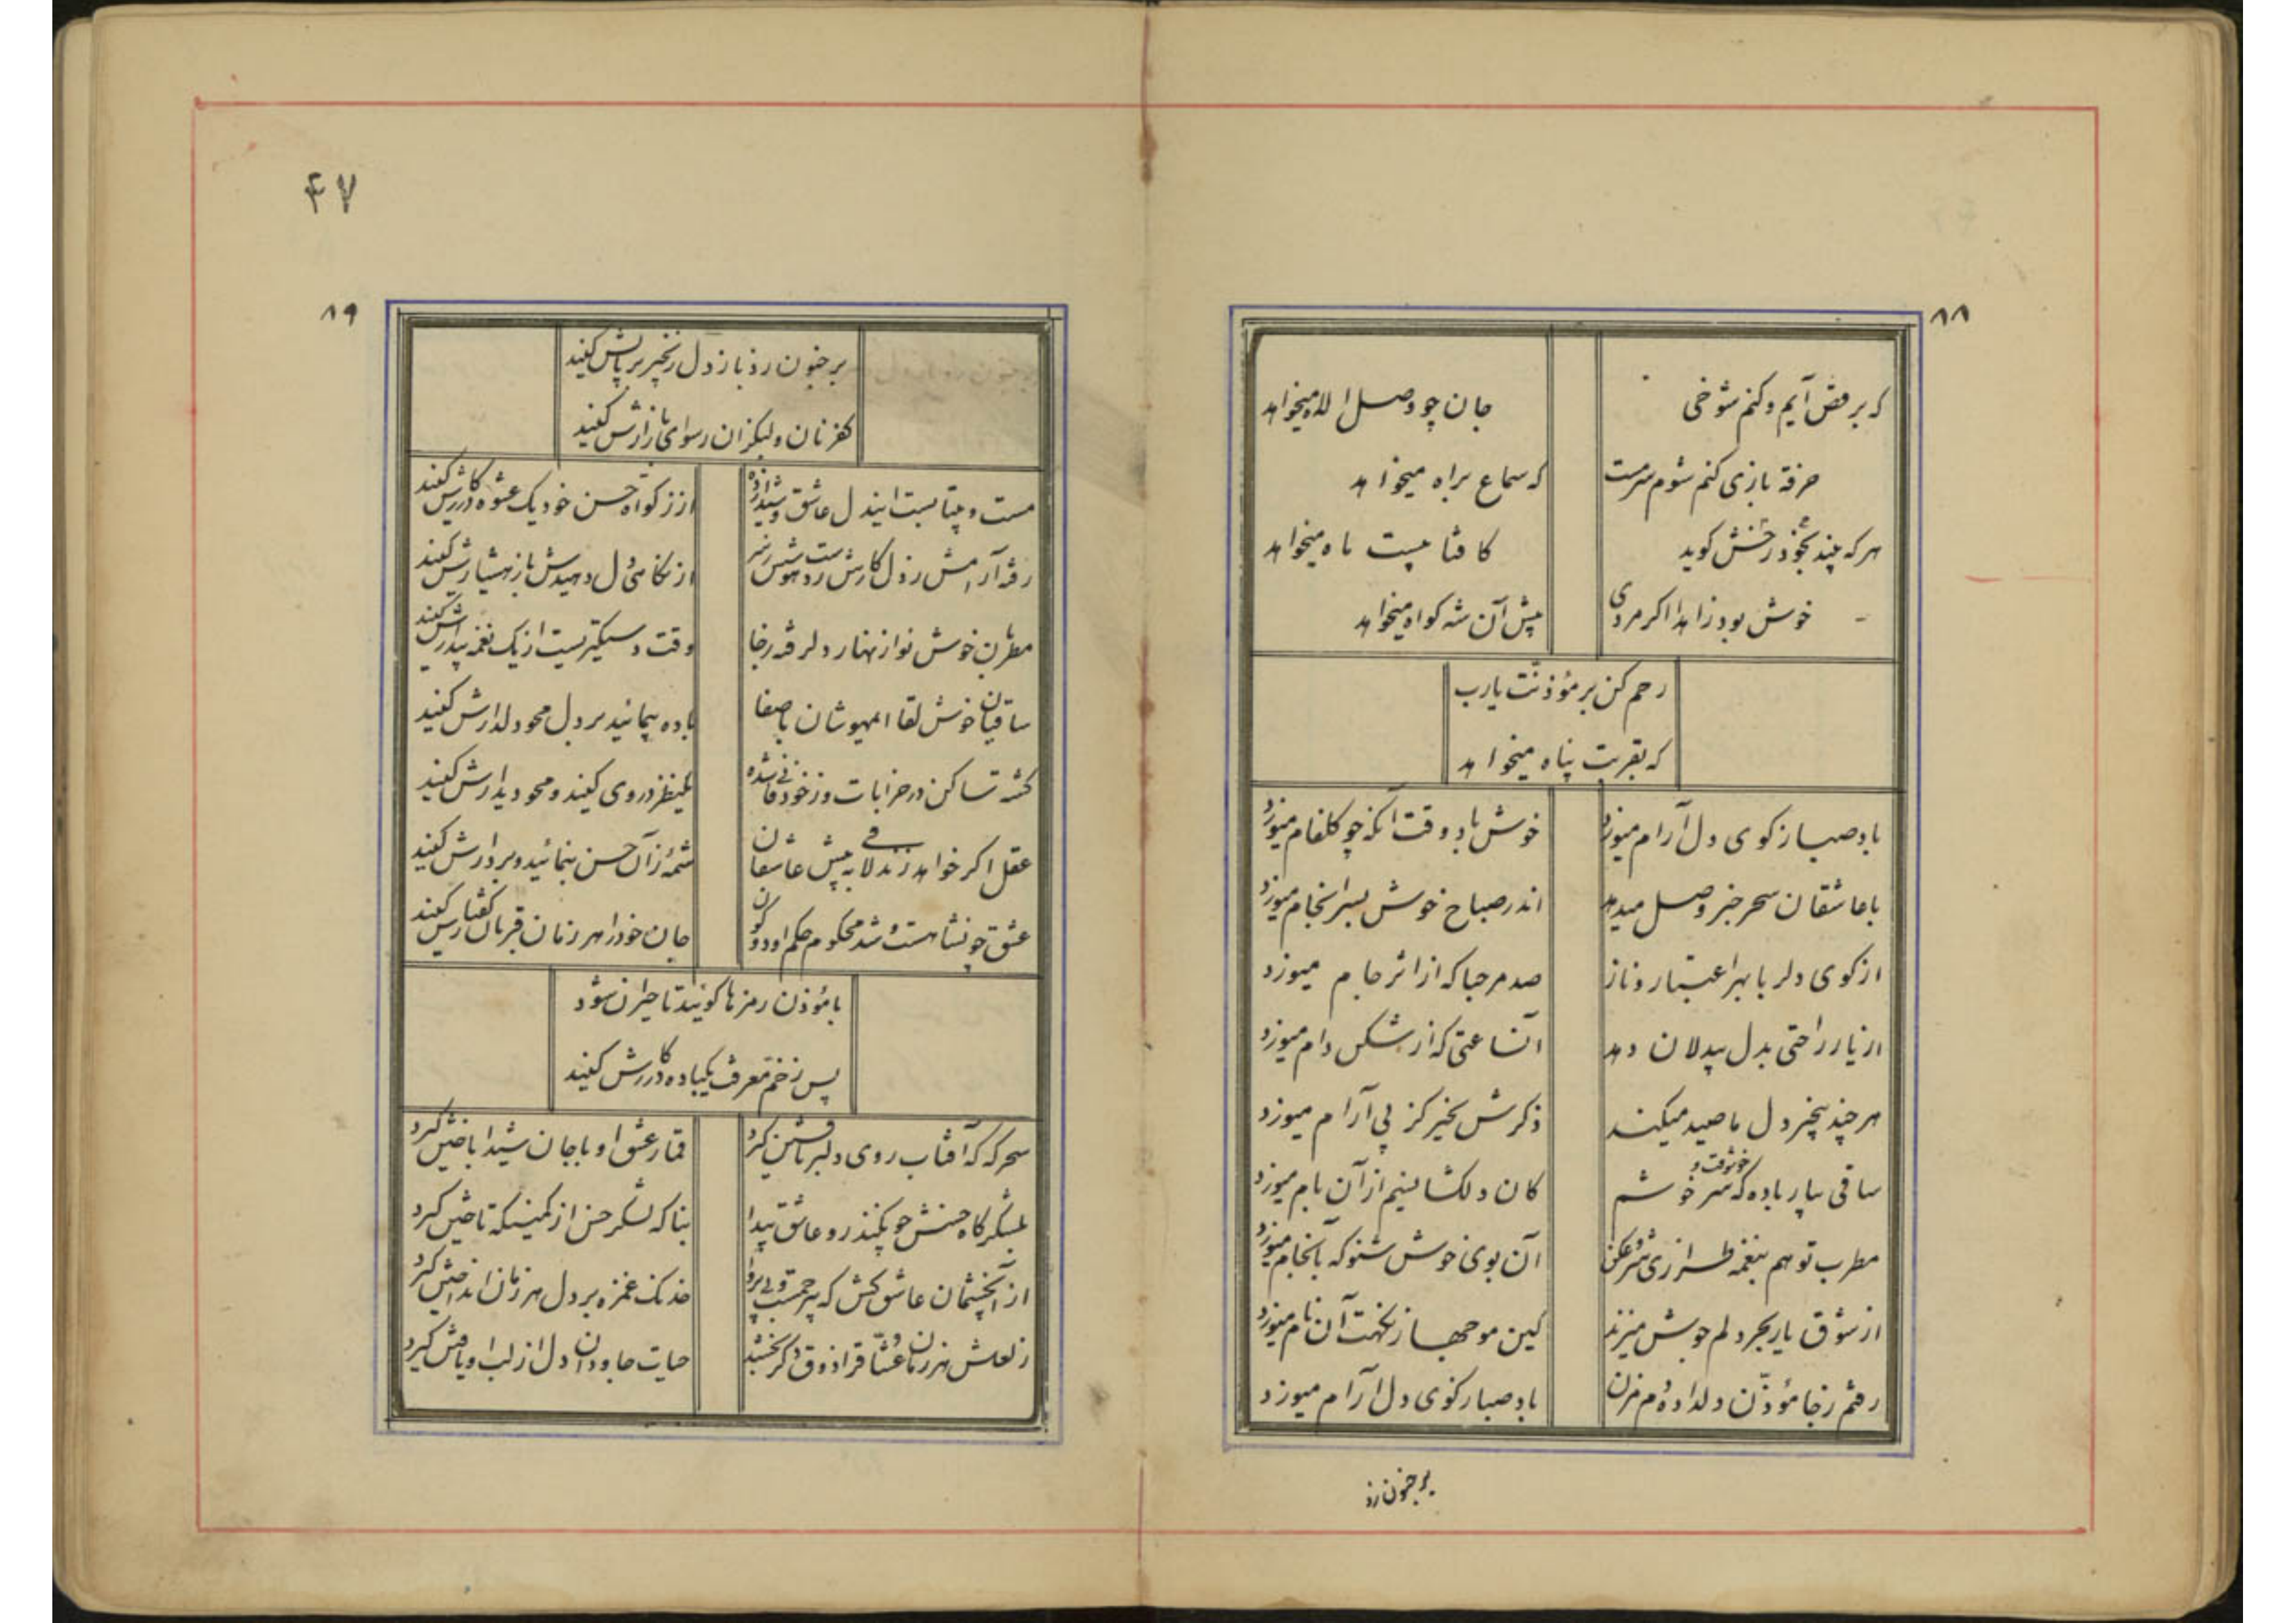 ۸۸
که برقص آیم و کنم شوخی
جان چو وصل اله میخواهد
خرقه بازی کنم شوم سرمست
که سماع براه میخواهد
هرکه چند بخود رخش کوید
کافتا پیست ماه میخواهد
خوش بود زاهدا اکر مردی
پیش آن شه کواه میخواهد
رحم کن بر مؤذنت یارب
که بقربت پناه میخواهد
باد صبا ز کوی دل آرام میوزد
خوش باد وقت آنکه چو کلفام میوزد
با عاشقان سحر خبر وصل میدهد
اندر صباح خوش بسرانجام میوزد
از کوی دلربا بهر اعتبار و ناز
صد مرحبا که از اثر جام میوزد
از یار راحتی بدل بیدلان دهد
آنساعتی که از شکن دام میوزد
هر چند بیخبر دل ما صید میکند
ذکرش بخیر کز پی آرام میوزد
ساقی بیار باده که خوشوقت و سرخوشم
کان دلکشا نسیم از آن بام میوزد
مطرب تو هم بنغمه طرازی شروع کن
آن بوی خوش شنو که بانجام میوزد
از شوق یار بحر دلم جوش میزند
کین موجها ز نکهت آن نام میوزد
رفتم ز جا مؤذن دلداده دم مزن
باد صبا ز کوی دل آرام میوزد
بر جنون زد
۴۷
۸۹
بر جنون زد باز دل زنجیر بر پایش کنید
کفر نان و لیکن ان رسوای بازارش کنید
مست و بیتابست ایندل عاشق و شیدا زده
از زکواة حسن خود یک عشوه در کارش کنید
رفته آرامش ز دل کارش ز دست هوش نیز
از نکاهی دل دهیدش باز هشیارش کنید
مطربان خوش نواز نهار دلرفته ز جا
وقت دستگیریست از یک نغمه بیدارش کنید
ساقیان خوش لقا ایمهوشان باصفا
باده پیمائید بر دل محو دلدارش کنید
کشته تا ساکن در خرابات و ز خود فانی شده
یکنظر در وی کنید و محو دیدارش کنید
عقل اکر خواهد زند لافی به پیش عاشقان
شمهٔ زان حسن بنمائید و بر دارش کنید
عشق چو نشاهست و شد محکوم حکم او دو کون
جان خود را هر زمان قربان کفتارش کنید
با مؤذن رمزها کوئید تا حیران شود
پس ز خم معرفت یکباده در کارش کنید
سحرکه کافتاب روی دلبر تافتن کیرد
قمار عشق او با جان شیدا باختن کیرد
بلشکرکاه حسنش چو بکنذرد عاشق بیدا
بناکه لشکر حسن از کمینکه تاختن کیرد
از آنچشمان عاشق کش که بیرحمست و بی پروا
خدنک غمزه بر دل هر زمان انداختن کیرد
ز لعلش هر زمان عشاق را ذوق دکر بخشد
حیات جاودان دل از لب او یافتن کیرد